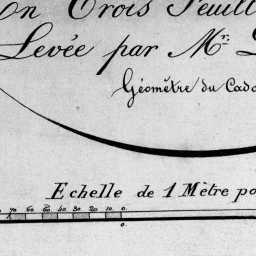 En Trois Feuill
Levée par Mr.
Géomêtre du Cada
Echelle de 1 Mètre po
70. 60. 50. 40. 30. 20. 10. 0.
0.